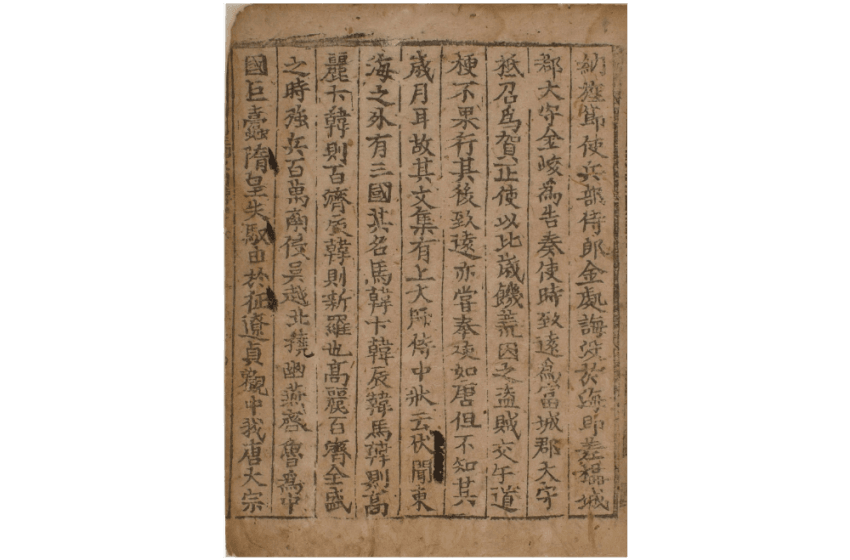 納旌節使兵部侍郎金處誨没於海即差橻城
郡大守金峻為告奏使時致遠為富城郡大守
祗召為賀正使以比歲饑荒因之盜賊交午道
梗不果行其後致遠亦嘗奉使如唐但不知其
歲月耳故其文集有上大師侍中狀云伏聞東
海之外有三國其名馬韓卞韓辰韓馬韓則髙
麗卞韓則百濟辰韓則新羅也髙麗百濟全盛
之時強兵百萬南侵吳越北撓幽燕齊魯為中
國巨蠹隋皇失馭由於征遼貞觀中我唐大宗